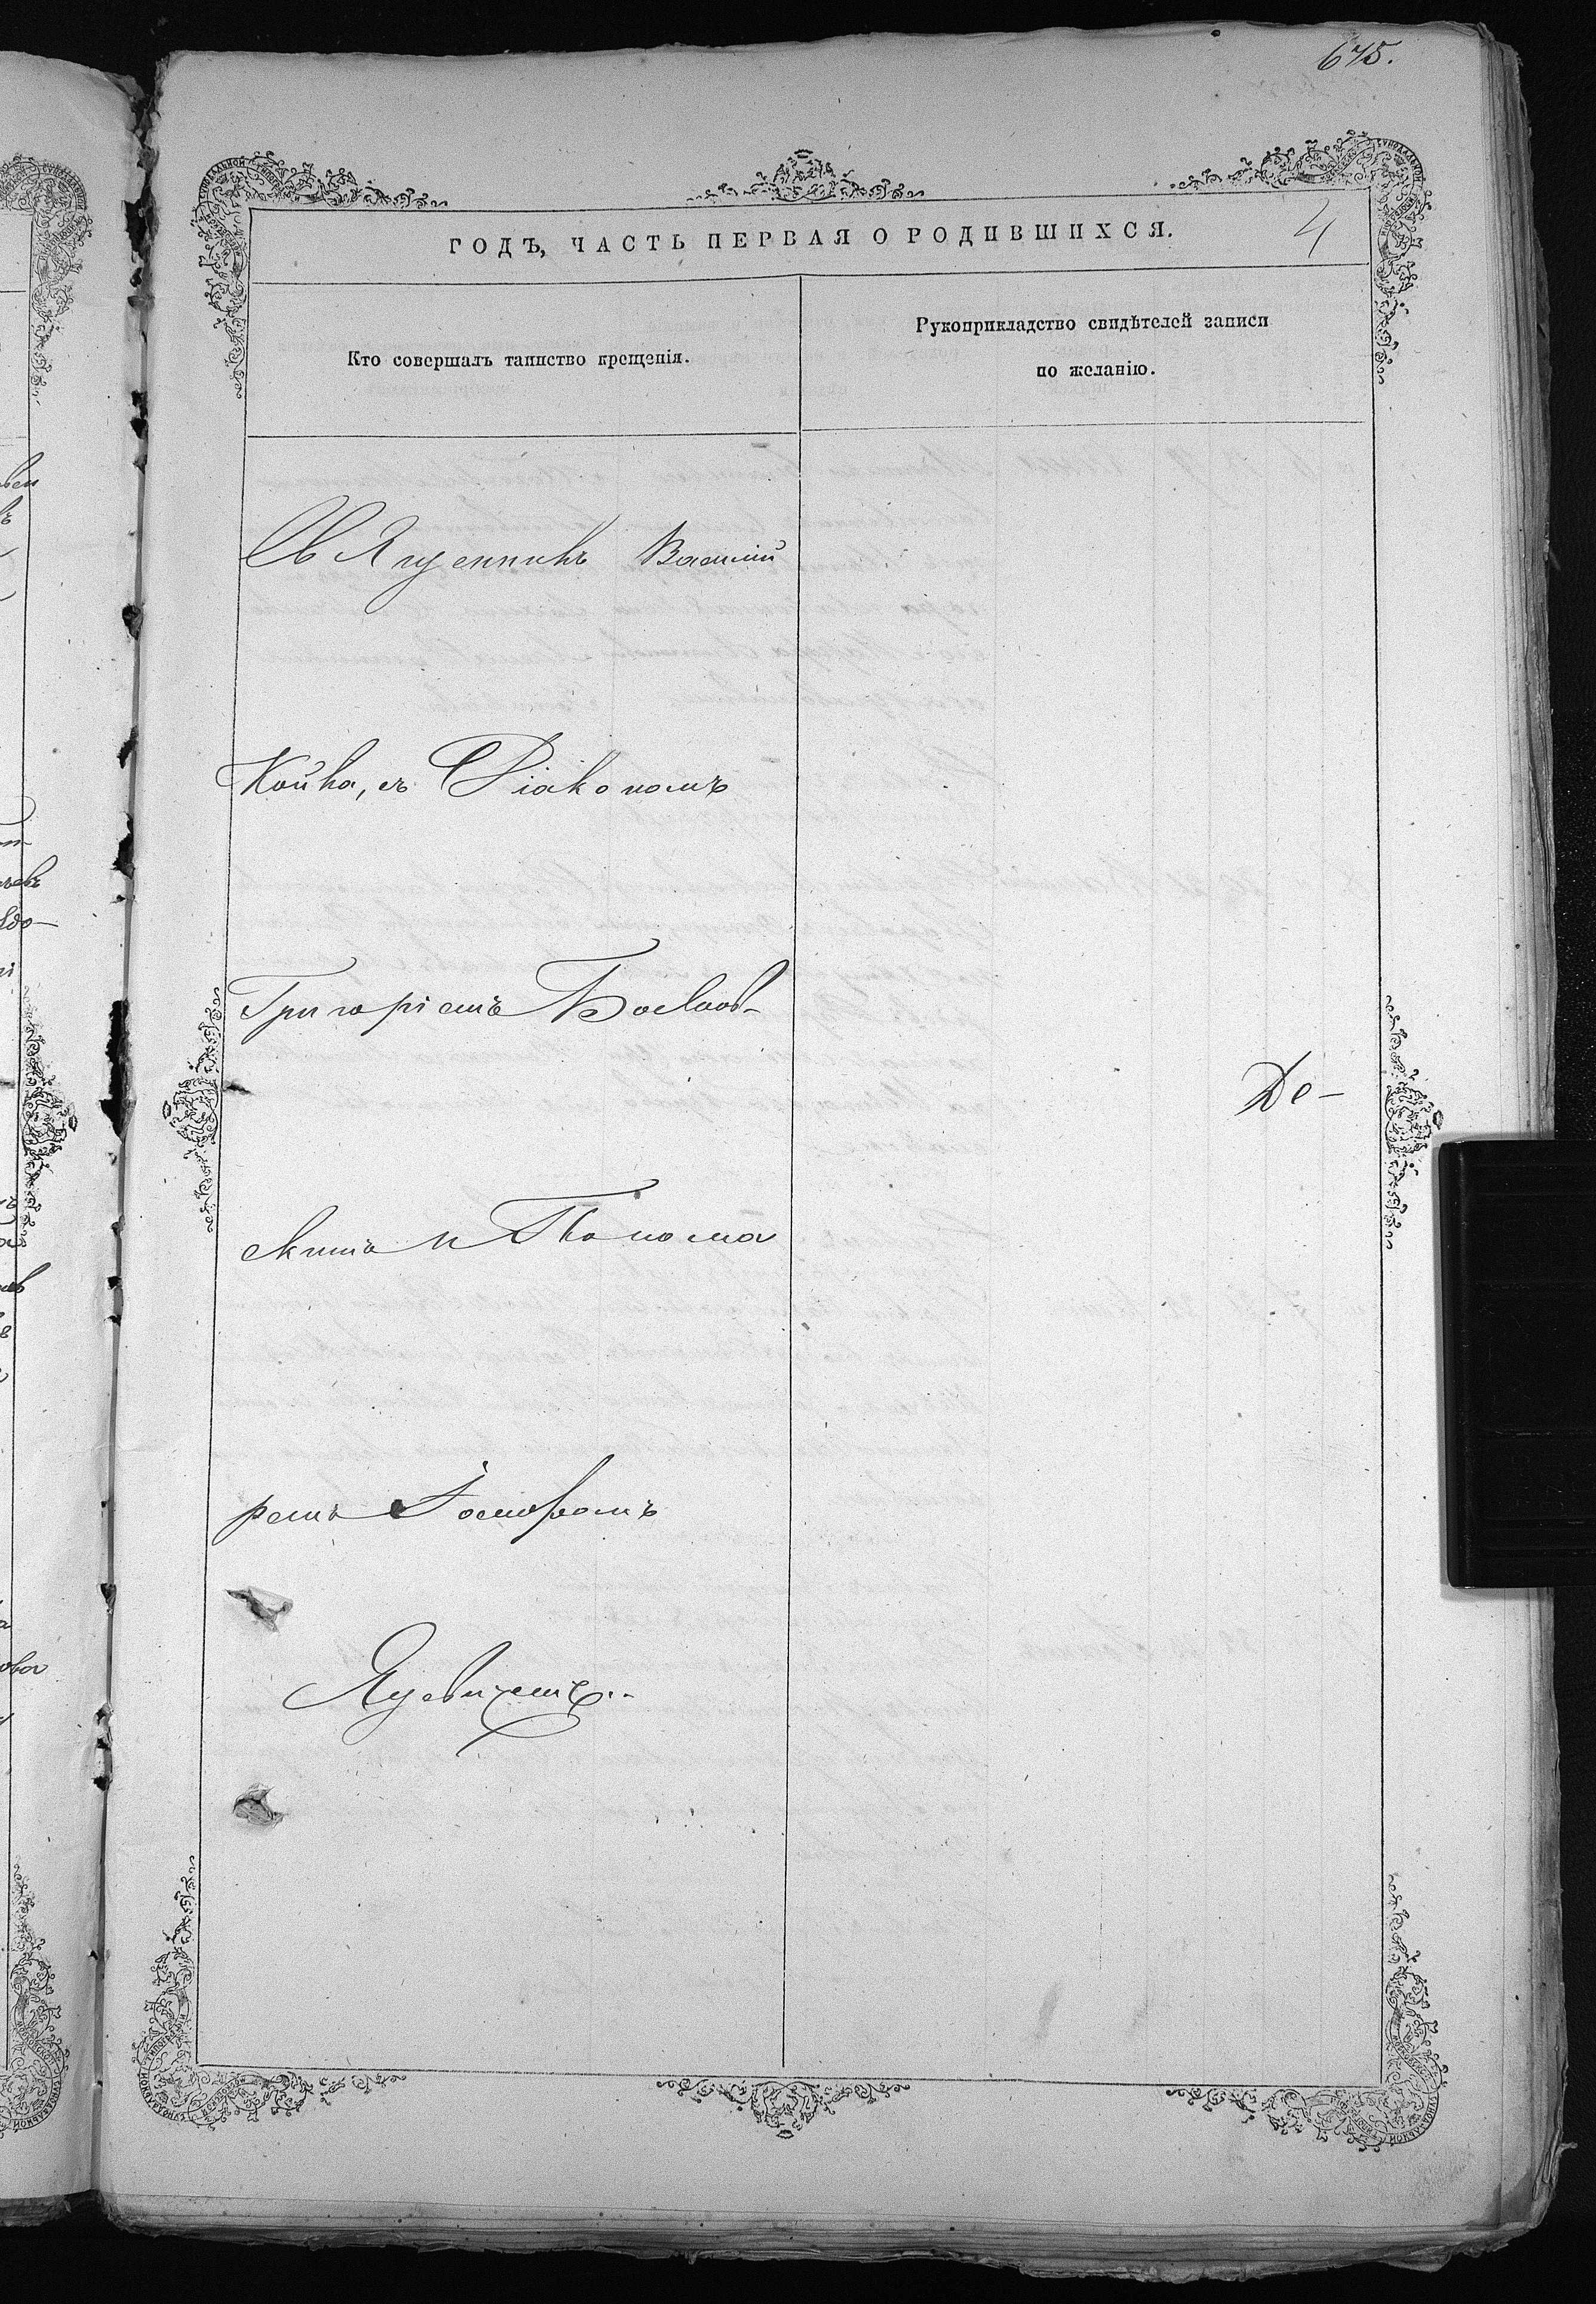 675.
ГОДЪ, ЧАСТЬ ПЕРВАЯ О РОДИВШИХСЯ.
4
Кто совершалъ таинство крещенія.
Рукоприкладство свидѣтелей записи
по желанію.
Священникъ Василій
Койко, съ Діакономъ
Григоріемъ Боелов-
De-
скимъ и Понома
ремъ